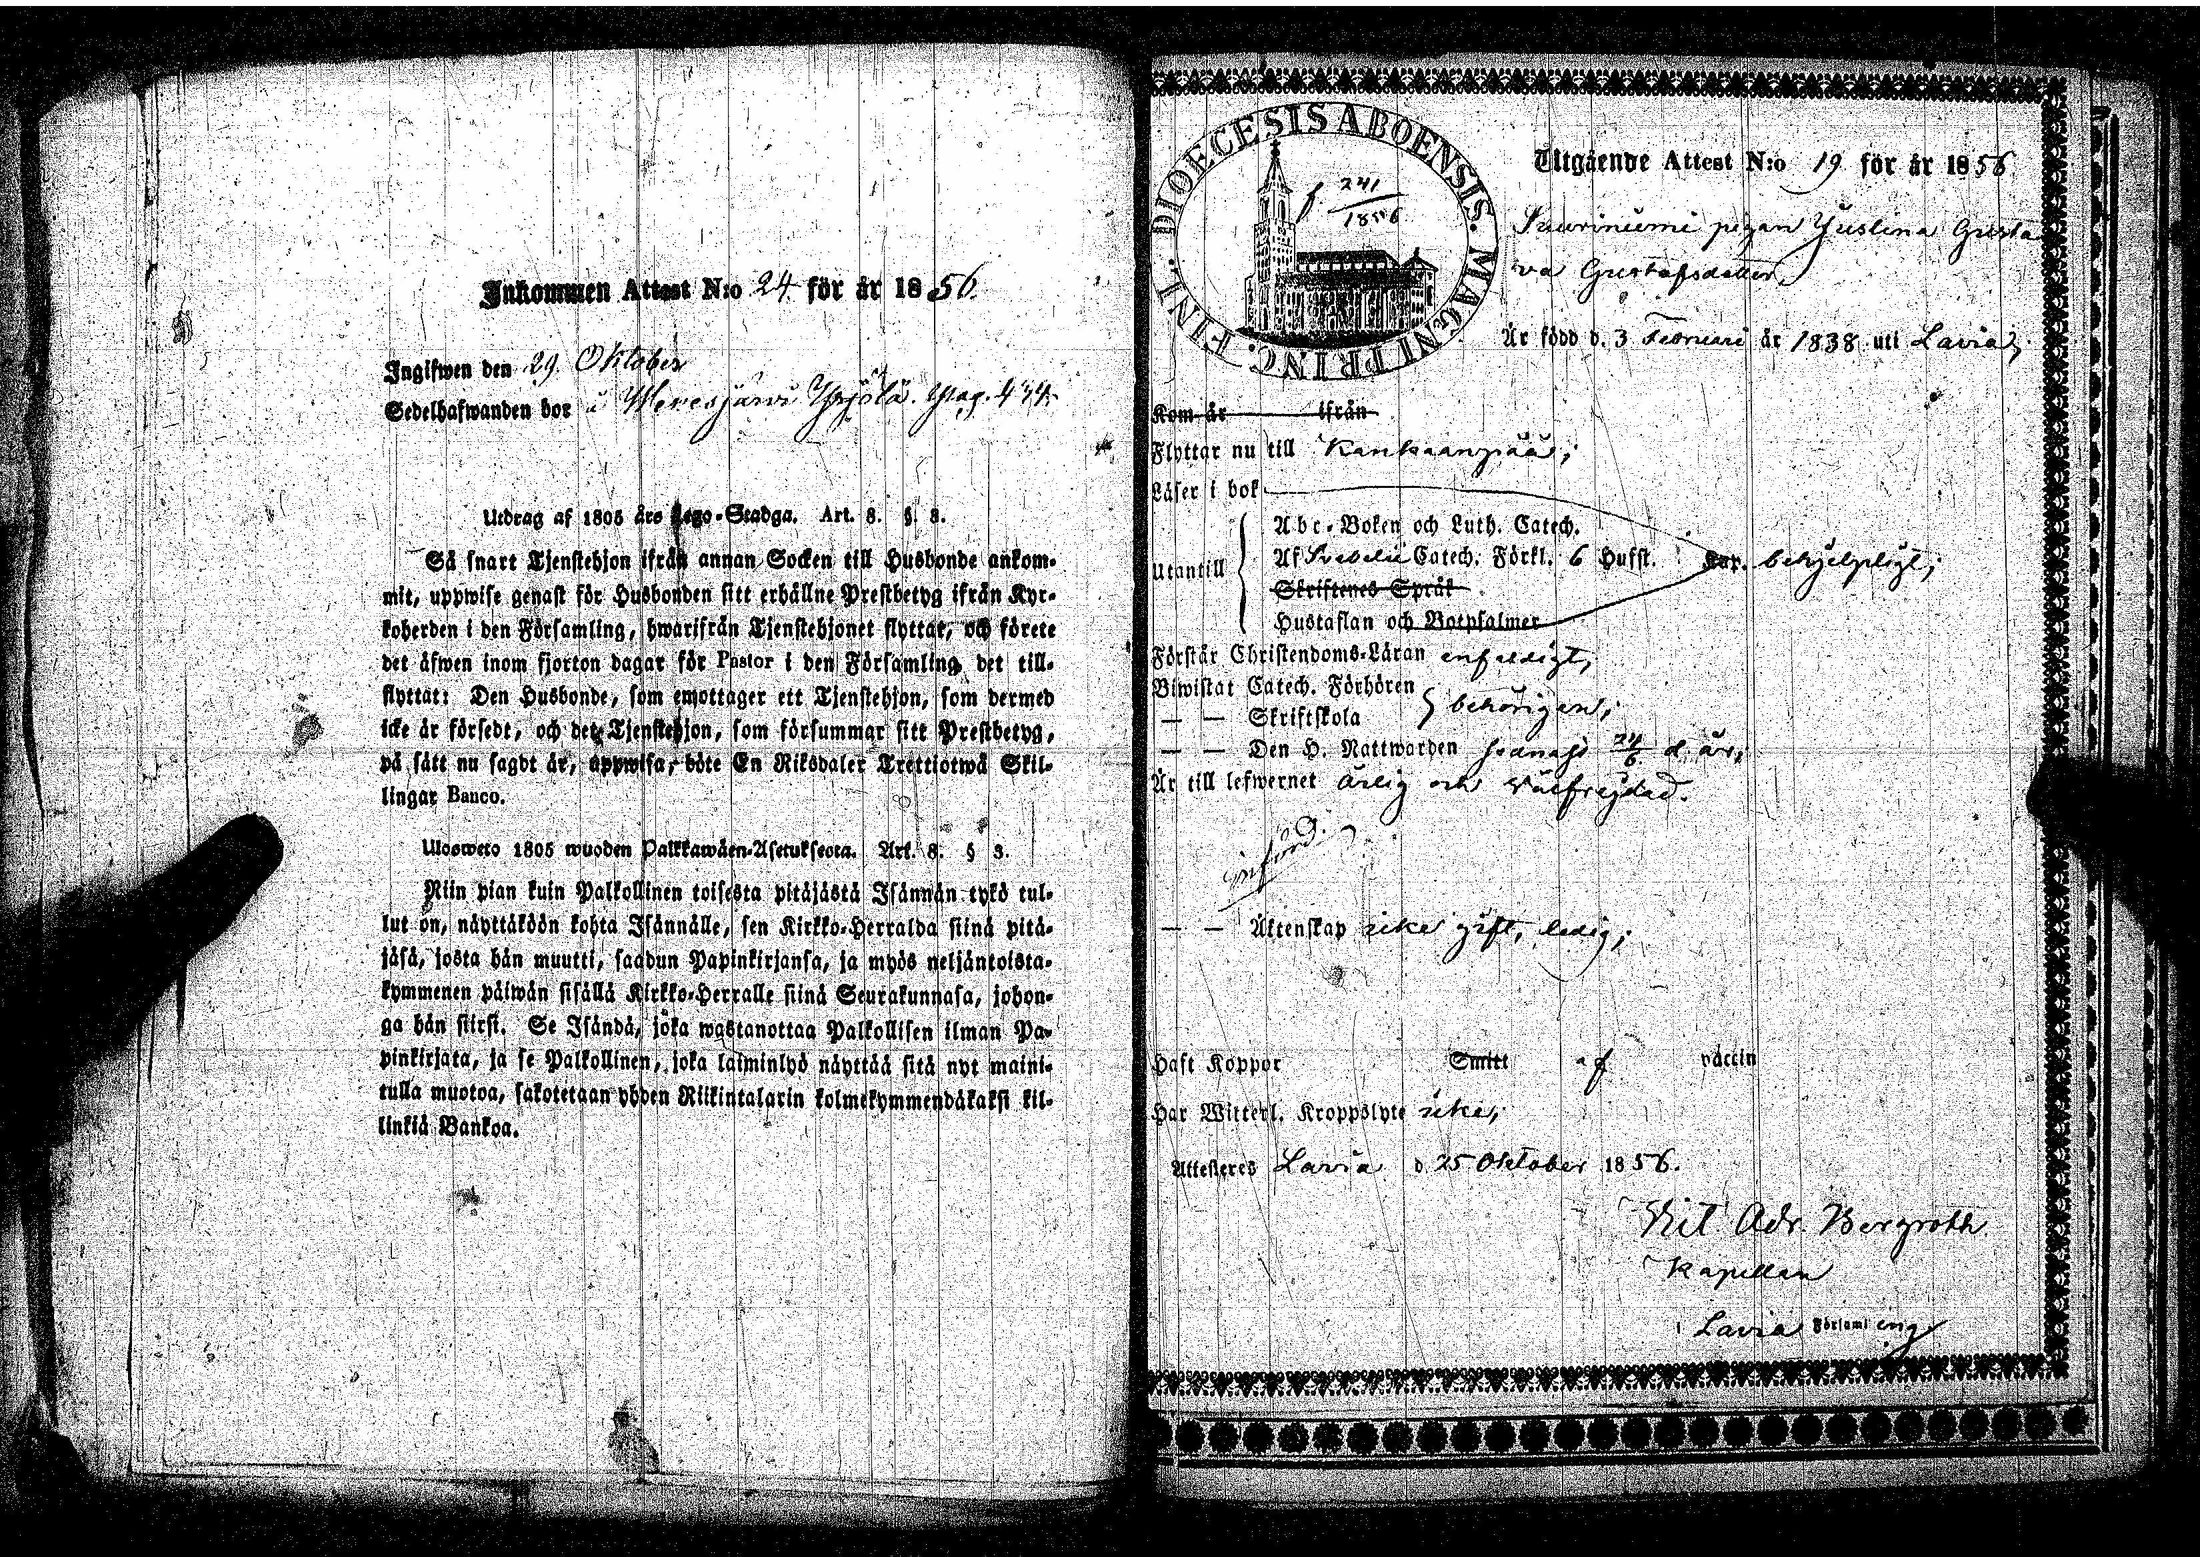 Inkommen Attest N:o 24 för år 1856.
Ingifwen den 29 Oktober
Sedelhafwanden bor i Weresjärvi Yrjölä. Pag. 434.
Utdrag af 1805 års Lego-Stadga. Art. 8. §. 3.
Så snart Tjenstehjon ifrån annan Socken till Husbonde ankom-
mit, uppwise genast för Husbonden sitt erhållne Prestbetyg ifrån Kyr-
koherden i den Församling, hwarifrån Tjenstehjonet flyttat, och förete
det äfwen inom fjorton dagar för Pastor i den Församling det till-
flyttat: Den Husbonde, som emottager ett Tjenstehjon, som dermed
icke är försedt, och det Tjenstehjon, som försummar sitt Prestbetyg,
på sätt nu sagdt är, uppwisa, böte En Riksdaler Trettiotwå Skil-
lingar Banco.
Ulosweto 1805 wuoden Palkkawäen-Asetuksesta. Art. 8. § 3.
Niin pian kuin Palkollinen toisesta pitäjästä Isännän tykö tul-
lut on, näyttäköön kohta Isännälle, sen Kirkko-Herralda siinä pitä-
jäsä, josta hän muutti, saadun Papinkirjansa, ja myös neljäntoista-
kymmenen päiwän sisällä Kirkko-Herralle siinä Seurakunnasa, johon-
ga hän siirsi. Se Isändä, joka wastanottaa Palkollisen ilman Pa-
pinkirjata, ja se Palkollinen, joka laiminlyö näyttää sitä nyt maini-
tulla muotoa, sakotetaan yhden Riikintalarin kolmekymmendäkaksi kil-
linkiä Bankoa.
DIOECESIS ABOENSIS. MAGNI PRINC. FINL.
f. 241
1856
Utgående Attest N:o 19 för år 1856
Suuriniemi pigan Justina Gusta
va Gustafsdotter,
Är född d. 3 Februari år 1838 uti Lavia,
Kom år ifrån
Flyttar nu till Kankaanpää;
Läser i bok
Utantill
Abc-Boken och Luth. Catech.
Af Svebelii Catech. Förkl. 6 Hufst. behjelpligt;
Skriftenes Språk
Hustaflan och Botpsalmer
Förstår Christendoms-Läran enfaldigt,
Biwistat Catech. Förhören
— — Skriftskola behörigen;
— — Den H. Nattwarden senast 24/6 d. år,
Är till lefwernet ärlig och välfrejdad.
införd.
— — Äktenskap icke gift, ledig;
Haft Koppor Smitt af vaccin
Har Witterl. Kroppslyte icke,
Attesteres Lavia d. 25 Oktober 1856.
Nit Adr. Bergroth.
Kapellan
i Lavia Församling